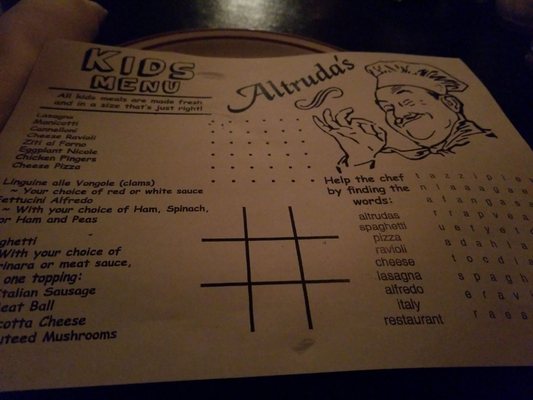 KIDS
MENU
All kids meals are made fresh
and in a size that's just right!
Lasagna
Manicotti
Cannelloni
Cheese Ravioli
Ziti al Forno
Eggplant Nicole
Chicken Fingers
Cheese Pizza
Linguine alle Vongole (clams)
~ Your choice of red or white sauce
Fettucini Alfredo
~ With your choice of Ham, Spinach,
or Ham and Peas
ghetti
With your choice of
rinara or meat sauce,
one topping:
talian Sausage
eat Ball
cotta Cheese
uteed Mushrooms
Altruda's
Help the chef
by finding the
words:
altrudas
spaghetti
pizza
ravioli
cheese
lasagna
alfredo
italy
restaurant